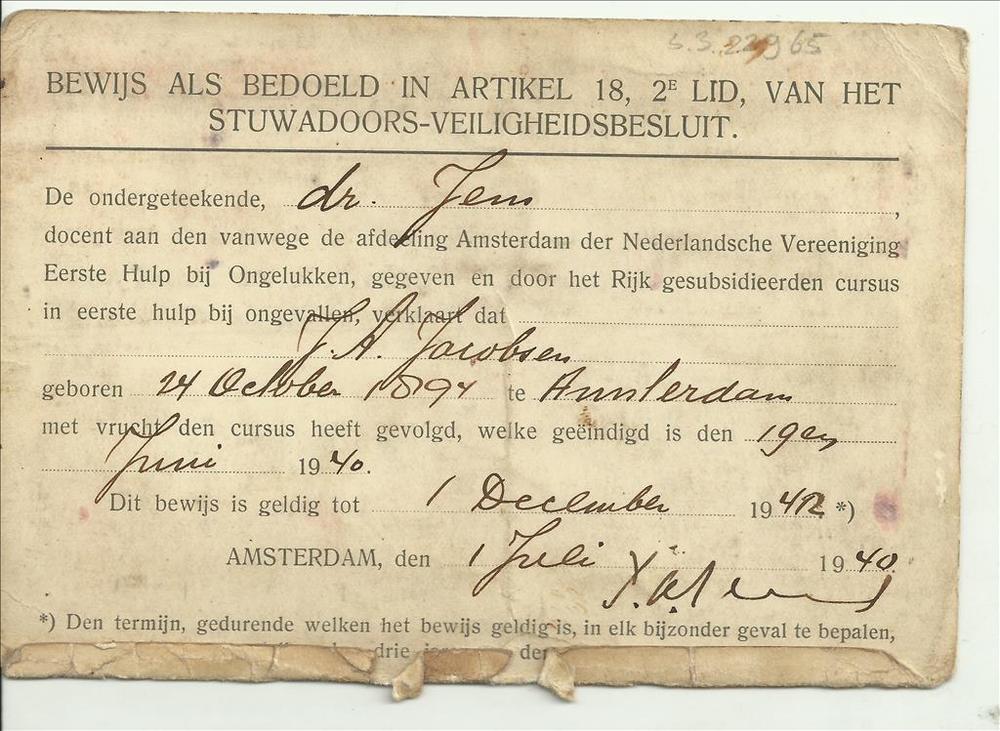 S.3.22965
BEWIJS ALS BEDOELD IN ARTIKEL 18, 2E LID, VAN HET
STUWADOORS-VEILIGHEIDSBESLUIT.
De ondergeteekende, dr. Jens,
docent aan den vanwege de afdeeling Amsterdam der Nederlandsche Vereeniging
Eerste Hulp bij Ongelukken, gegeven en door het Rijk gesubsidieerden cursus
in eerste hulp bij ongevallen, verklaart dat
J. A. Jacobsen
geboren 24 October 1894 te Amsterdam
met vrucht den cursus heeft gevolgd, welke geëindigd is den 19en
Juni 1940.
Dit bewijs is geldig tot 1 December 1942 *)
AMSTERDAM, den 1 Juli 1940
*) Den termijn, gedurende welken het bewijs geldig is, in elk bijzonder geval te bepalen,
drie